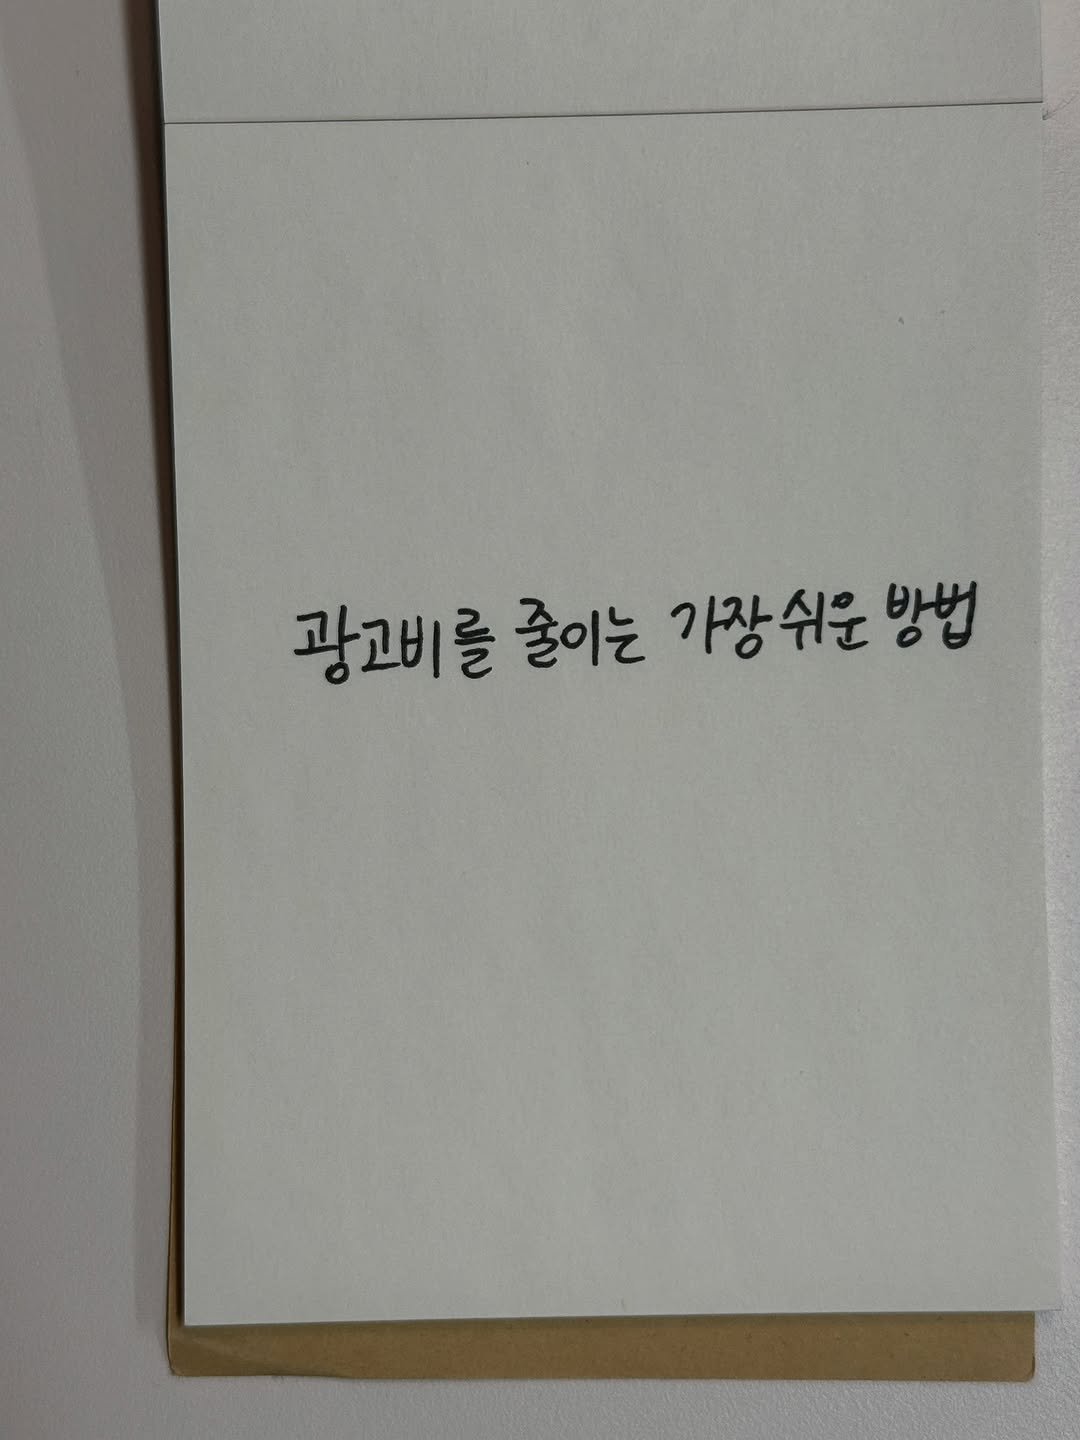 광고비를 줄이는 가장 쉬운 방법